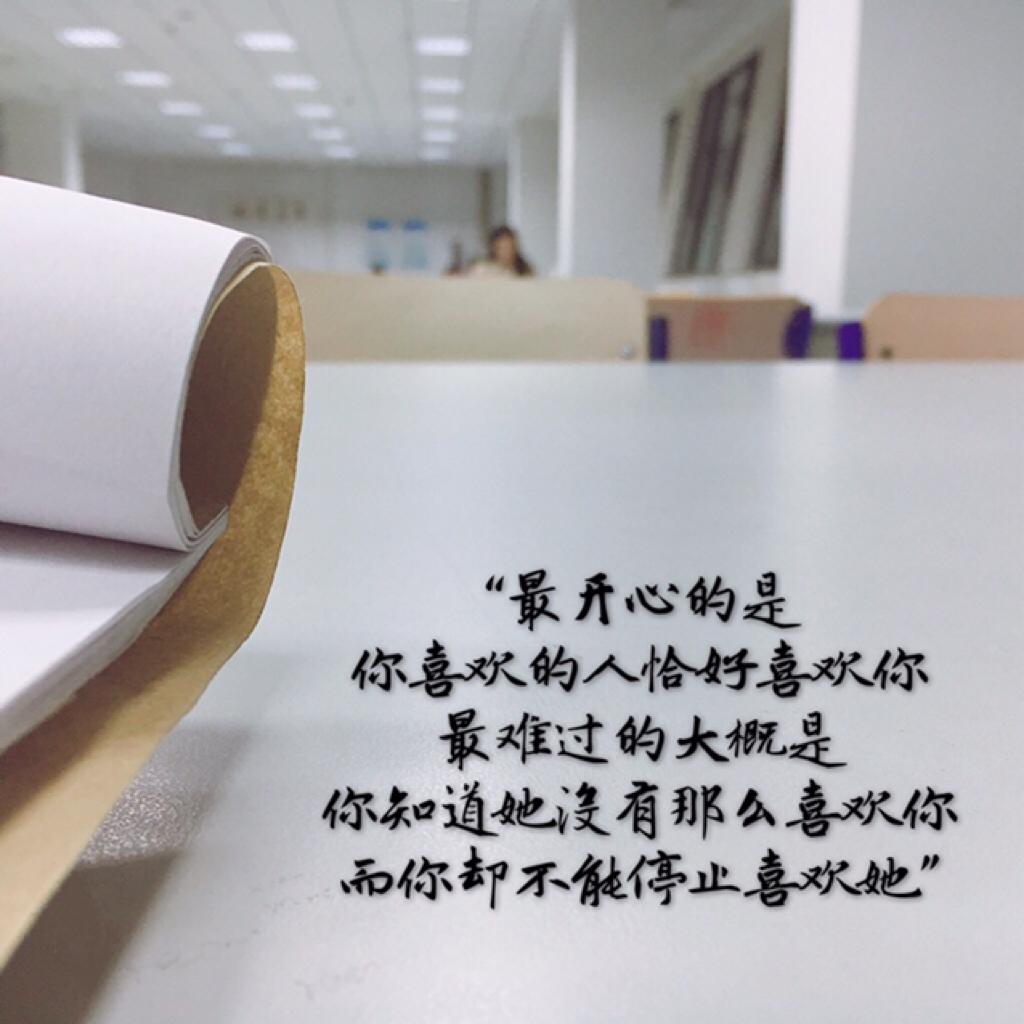 “最开心的是
你喜欢的人恰好喜欢你
最难过的大概是
你知道她没有那么喜欢你
而你却不能停止喜欢她”